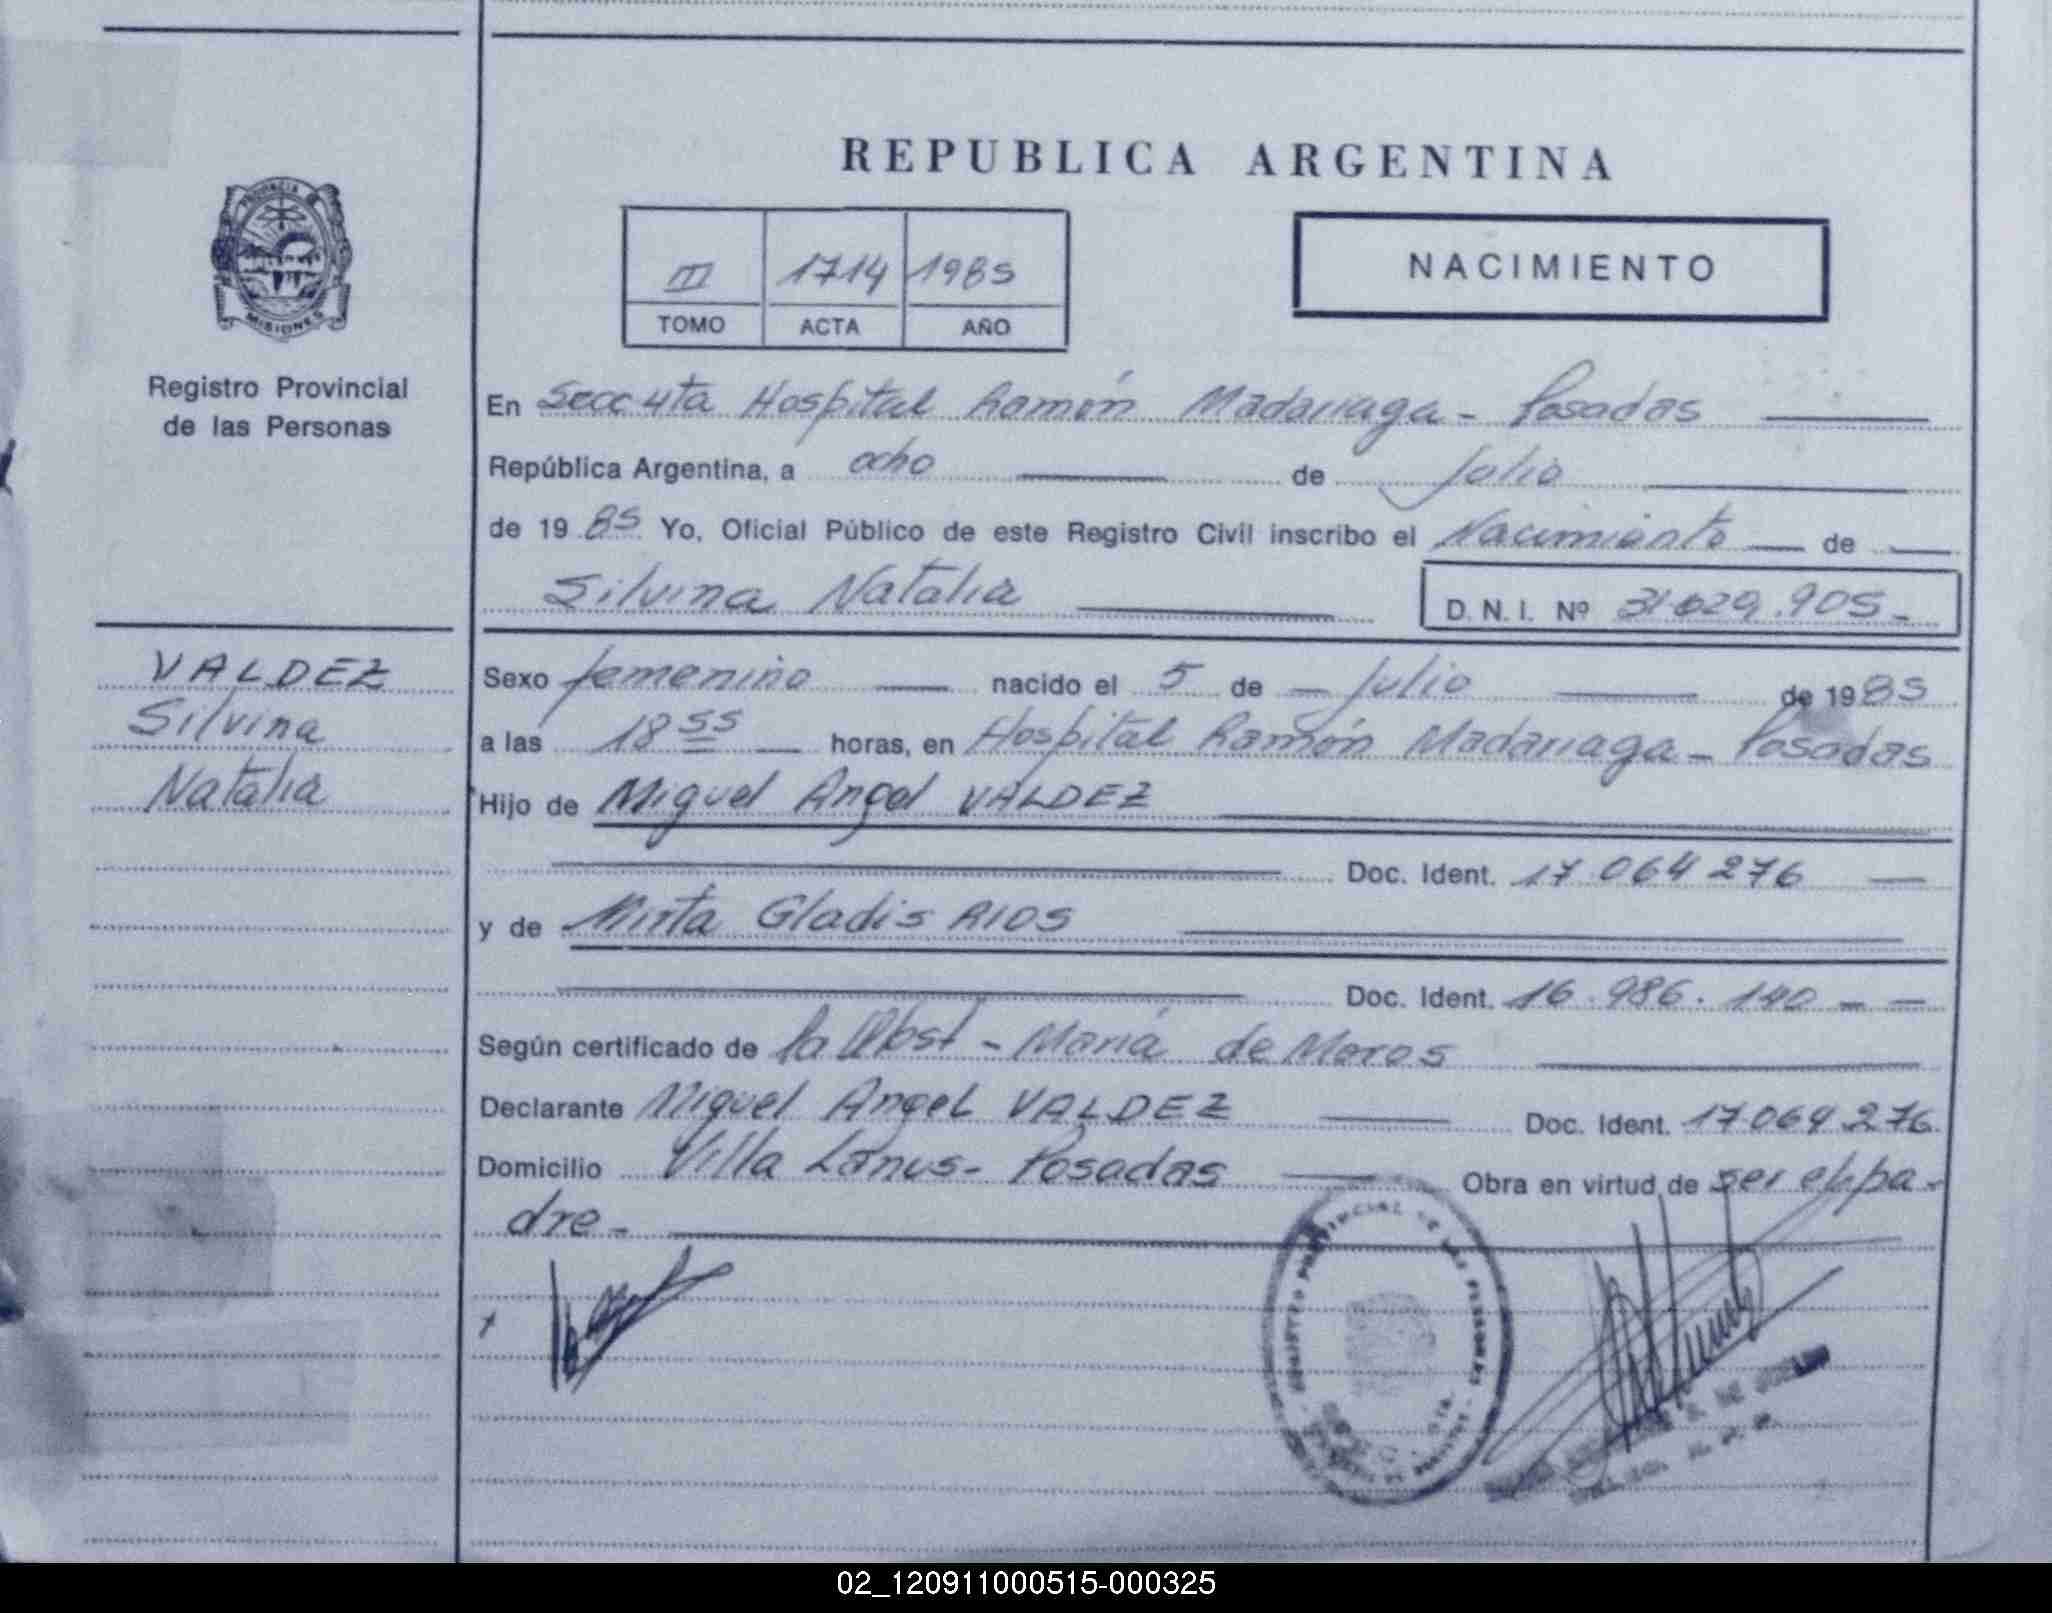 REPUBLICA ARGENTINA
PROVINCIA
MISIONES
Registro Provincial
de las Personas
III 1714 1985
TOMO ACTA AÑO
NACIMIENTO
En Secc 4ta Hospital Ramón Madariaga - Posadas
República Argentina, a ocho de Julio
de 1985 Yo, Oficial Público de este Registro Civil inscribo el Nacimiento de
Silvina Natalia
D. N. I. Nº 31.629.905-
VALDEZ
Silvina
Natalia
Sexo femenino nacido el 5 de Julio de 1985
a las 18 55 horas, en Hospital Ramón Madariaga - Posadas
Hijo de Miguel Angel VALDEZ
Doc. Ident. 17 064 276
y de Mirta Gladis RIOS
Doc. Ident. 16.986.140 - -
Según certificado de la Obst - María de Moros
Declarante Miguel Angel VALDEZ Doc. Ident. 17.064.276.
Domicilio Villa Lanus - Posadas Obra en virtud de ser el pa-
dre -
REGISTRO PROVINCIAL DE LAS PERSONAS
02_120911000515-000325